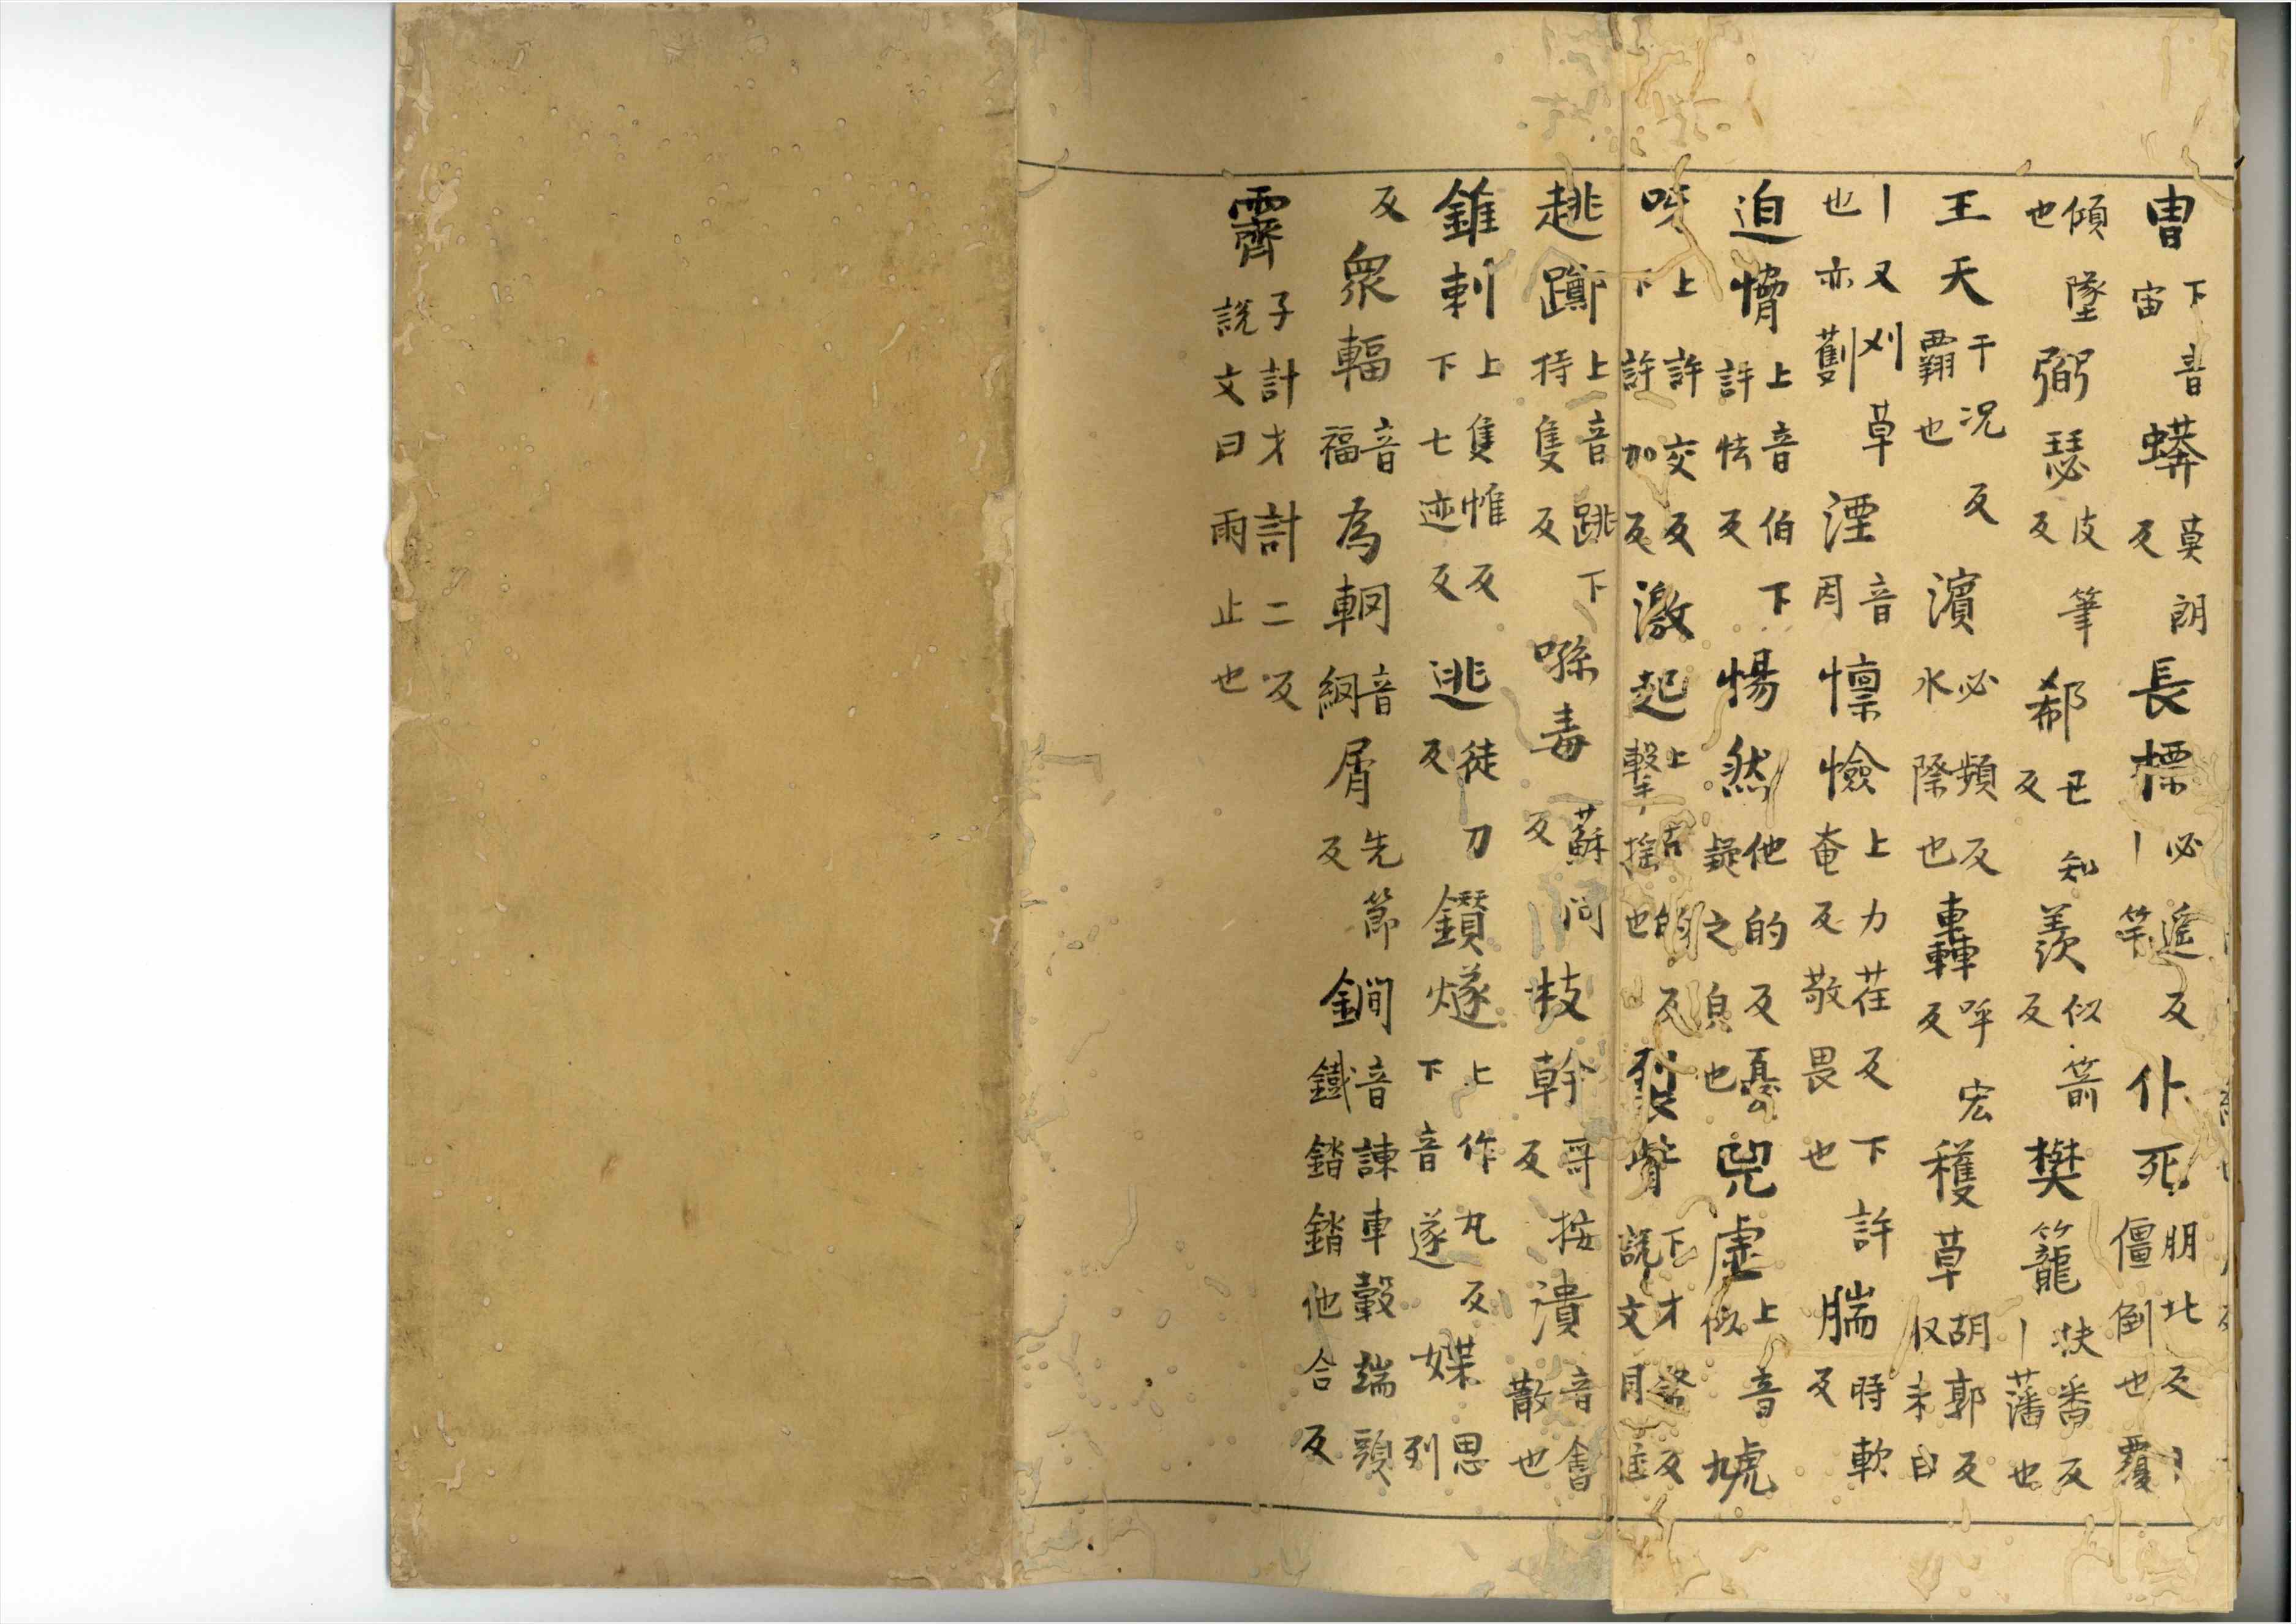 冑下音宙蟒莫朗反長摽必遥反丨竿仆死朋北反丨僵倒也覆
傾墜也弼瑟皮筆反郗丑知反羨似箭反樊籠扶番反丨藩也
王天干況反霸也濱必頻反水際也轟呼宏反穫草胡郭反収未曰
丨又刈草也亦劐湮音因懍憸上力荏反下許奄反敬畏也腨時軟反
迫愶上音伯下許怯反惕然他的反憂疑之皃也兕虚上音似九虓
哮呀上許交反下許加反激起上古的反擊揺也裂眥下才詣反説文目
趒躑上音跳下持隻反噝毒蘇問反枝幹哥按反潰音會散也
錐刺上隻惟反下七迹反逃徒刀反鑽燧上作丸反下音遂媟思列
反衆輻音福為輞音網屑先節反鐧音諫車轂端頭鐵錔錔他合反
霽子計才計二反説文曰雨止也